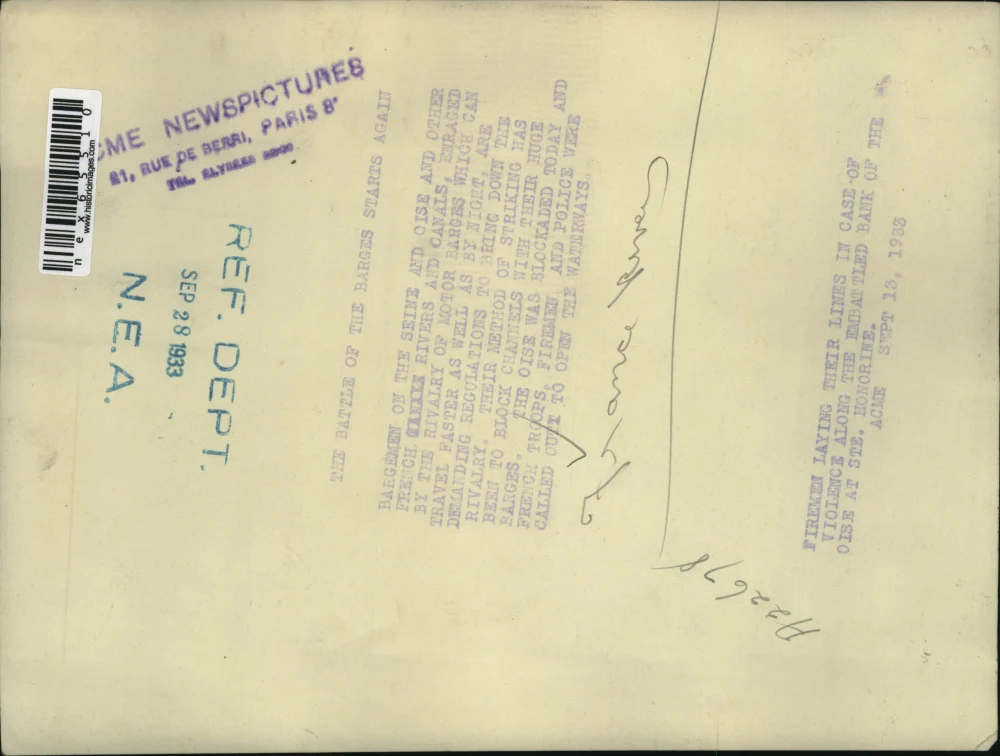 ACME NEWSPICTURES
21, RUE DE BERRI, PARIS 8e
TEL. ELYSEES
nex65510
www.historicimages.com
REF. DEPT.
SEP 28 1933
N.E.A.
THE BATTLE OF THE BARGES STARTS AGAIN
BARGEMEN ON THE SEINE AND OISE AND OTHER
FRENCH RIVERS AND CANALS, ENRAGED
BY THE RIVALRY OF MOTOR BARGES WHICH CAN
TRAVEL FASTER AS WELL AS BY NIGHT, ARE
DEMANDING REGULATIONS TO BRING DOWN THE
RIVALRY. THEIR METHOD OF STRIKING HAS
BEEN TO BLOCK CHANNELS WITH THEIR HUGE
BARGES. THE OISE WAS BLOCKADED TODAY AND
FRENCH TROOPS, FIREMEN AND POLICE WERE
CALLED OUT TO OPEN THE WATERWAYS.
France
A22678
FIREMEN LAYING THEIR LINES IN CASE OF
VIOLENCE ALONG THE EMBATTLED BANK OF THE
OISE AT STE. HONORINE.
ACME SEPT 13, 1933